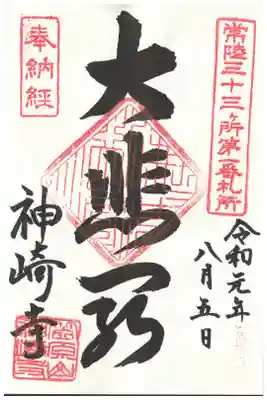 常陸三十三ヶ所第一番札所
奉納経
大悲閣
令和元年
八月五日
神崎寺